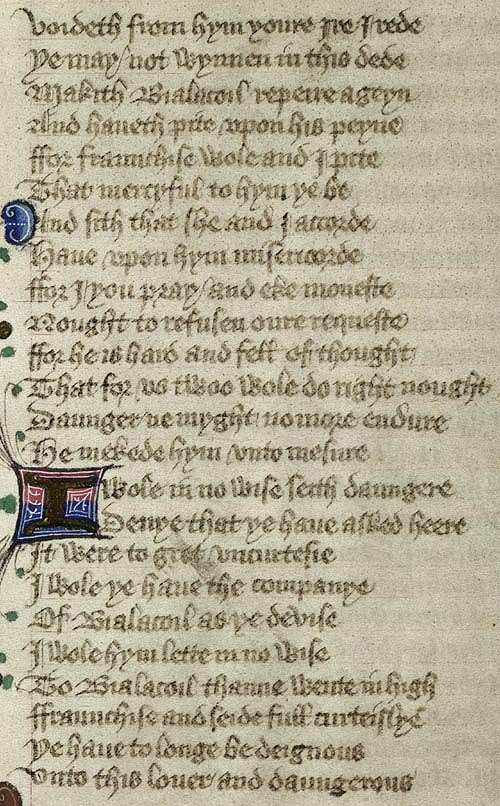 Voideth from hym youre Ire I rede
Ye may not wynnen in this dede
Makith Bialacoil repeire ageyn
And haueth pite vpon his peyne
ffor fraunchise wole and I pite
That mercyful to hym ye be
And sith that she and I accorde
Haue vpon hym misericorde
ffor I you pray and eke moneste
Nought to refusen oure requeste
ffor he is hard and fell of thought
That for vs twoo wole do right nought
Daunger ne myght no more endure
He mekede hym vnto mesure
I wole in no wise seith daungere
Denye that ye haue asked heere
It were to gret vncurtesie
I wole ye haue the companye
Of Bialacoil as ye devise
I wole hym lette in no wise
To Bialacoil thanne wente in high
ffraunchise and seide full curteislye
Ye haue to longe be deignous
Vnto this louer and daungerous